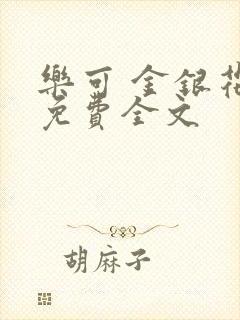 樂可 金銀花
免費全文
胡麻子